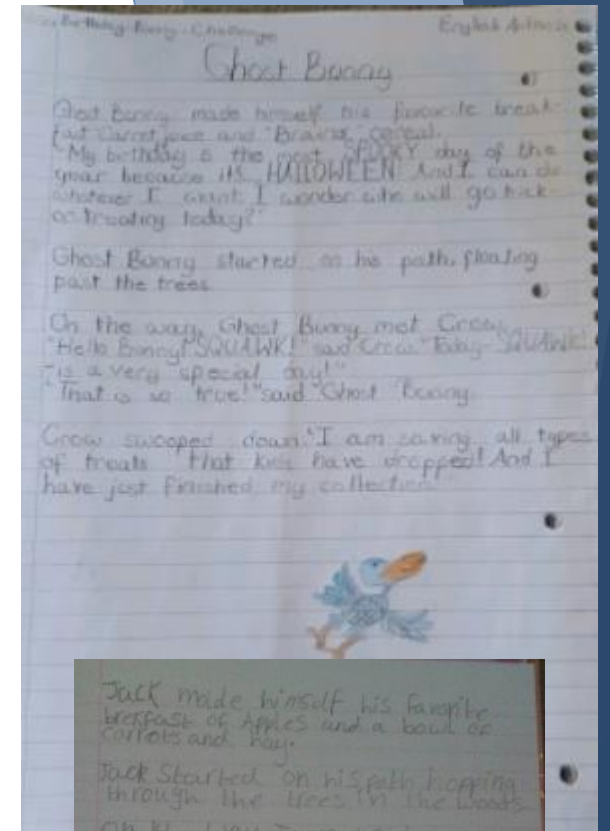 Birthday Bunny Challenge
English
Ghost Bunny
Ghost Bunny made himself his favourite break-
fast Carrot juice and "Brains" cereal.
"My birthday is the most SPOOKY day of the
year because it's HALLOWEEN! And I can do
whatever I want. I wonder who will go trick
or treating today?"
Ghost Bunny started on his path, floating
past the trees
On the way, Ghost Bunny met Crow.
"Hello Bunny! SQUAWK!" said Crow "Today- SQUAWK!
-is a very special day!"
"That is so true!" said Ghost Bunny
Crow swooped down. "I am saving all types
of treats that kids have dropped! And I
have just finished my collection"
Jack made himself his favorite
brerfast of Apples and a bowl of
carrots and hay.
Jack Started on his path hopping
through the trees in the woods